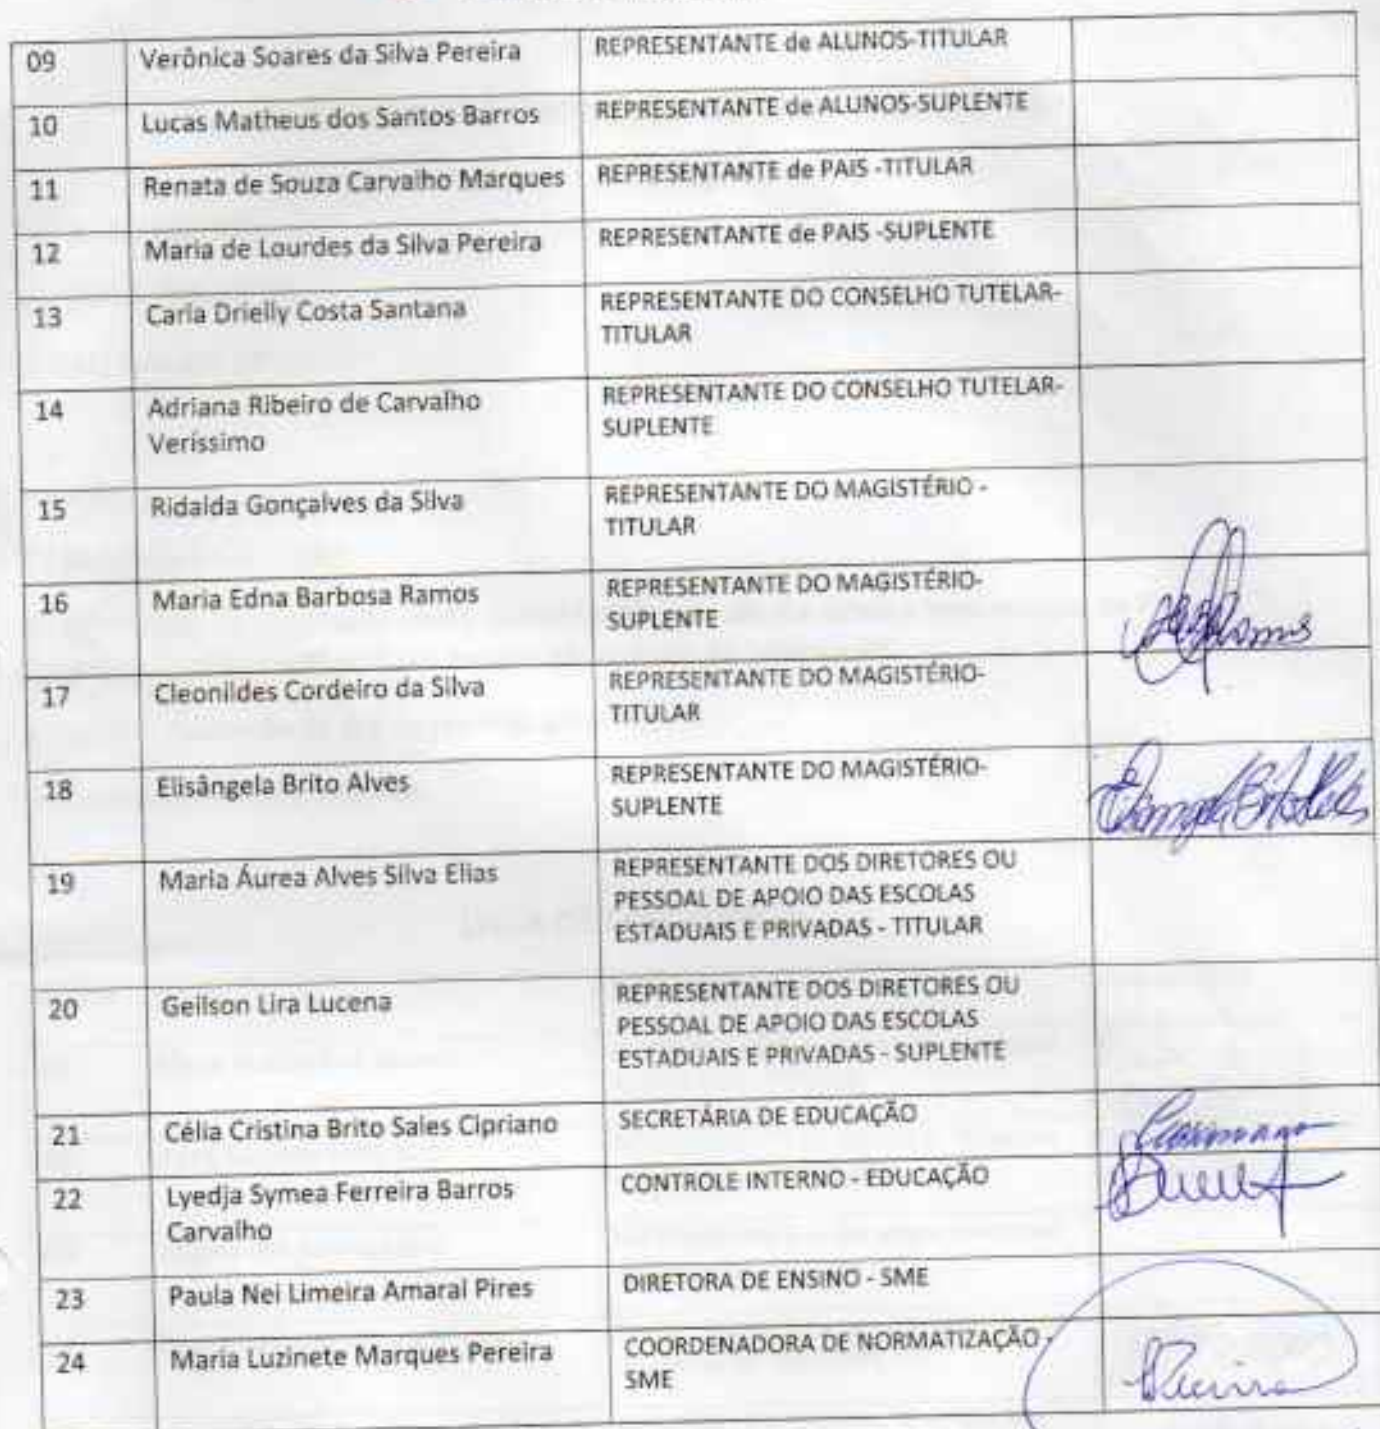 09 Verônica Soares da Silva Pereira REPRESENTANTE de ALUNOS-TITULAR
10 Lucas Matheus dos Santos Barros REPRESENTANTE de ALUNOS-SUPLENTE
11 Renata de Souza Carvalho Marques REPRESENTANTE de PAIS -TITULAR
12 Maria de Lourdes da Silva Pereira REPRESENTANTE de PAIS -SUPLENTE
13 Carla Drielly Costa Santana REPRESENTANTE DO CONSELHO TUTELAR-
TITULAR
14 Adriana Ribeiro de Carvalho REPRESENTANTE DO CONSELHO TUTELAR-
Veríssimo SUPLENTE
15 Ridalda Gonçalves da Silva REPRESENTANTE DO MAGISTÉRIO -
TITULAR
16 Maria Edna Barbosa Ramos REPRESENTANTE DO MAGISTÉRIO-
SUPLENTE
17 Cleonildes Cordeiro da Silva REPRESENTANTE DO MAGISTÉRIO-
TITULAR
18 Elisângela Brito Alves REPRESENTANTE DO MAGISTÉRIO-
SUPLENTE
19 Maria Áurea Alves Silva Elias REPRESENTANTE DOS DIRETORES OU
PESSOAL DE APOIO DAS ESCOLAS
ESTADUAIS E PRIVADAS - TITULAR
20 Geilson Lira Lucena REPRESENTANTE DOS DIRETORES OU
PESSOAL DE APOIO DAS ESCOLAS
ESTADUAIS E PRIVADAS - SUPLENTE
21 Célia Cristina Brito Sales Cipriano SECRETÁRIA DE EDUCAÇÃO
22 Lyedja Symea Ferreira Barros CONTROLE INTERNO - EDUCAÇÃO
Carvalho
23 Paula Nei Limeira Amaral Pires DIRETORA DE ENSINO - SME
24 Maria Luzinete Marques Pereira COORDENADORA DE NORMATIZAÇÃO -
SME